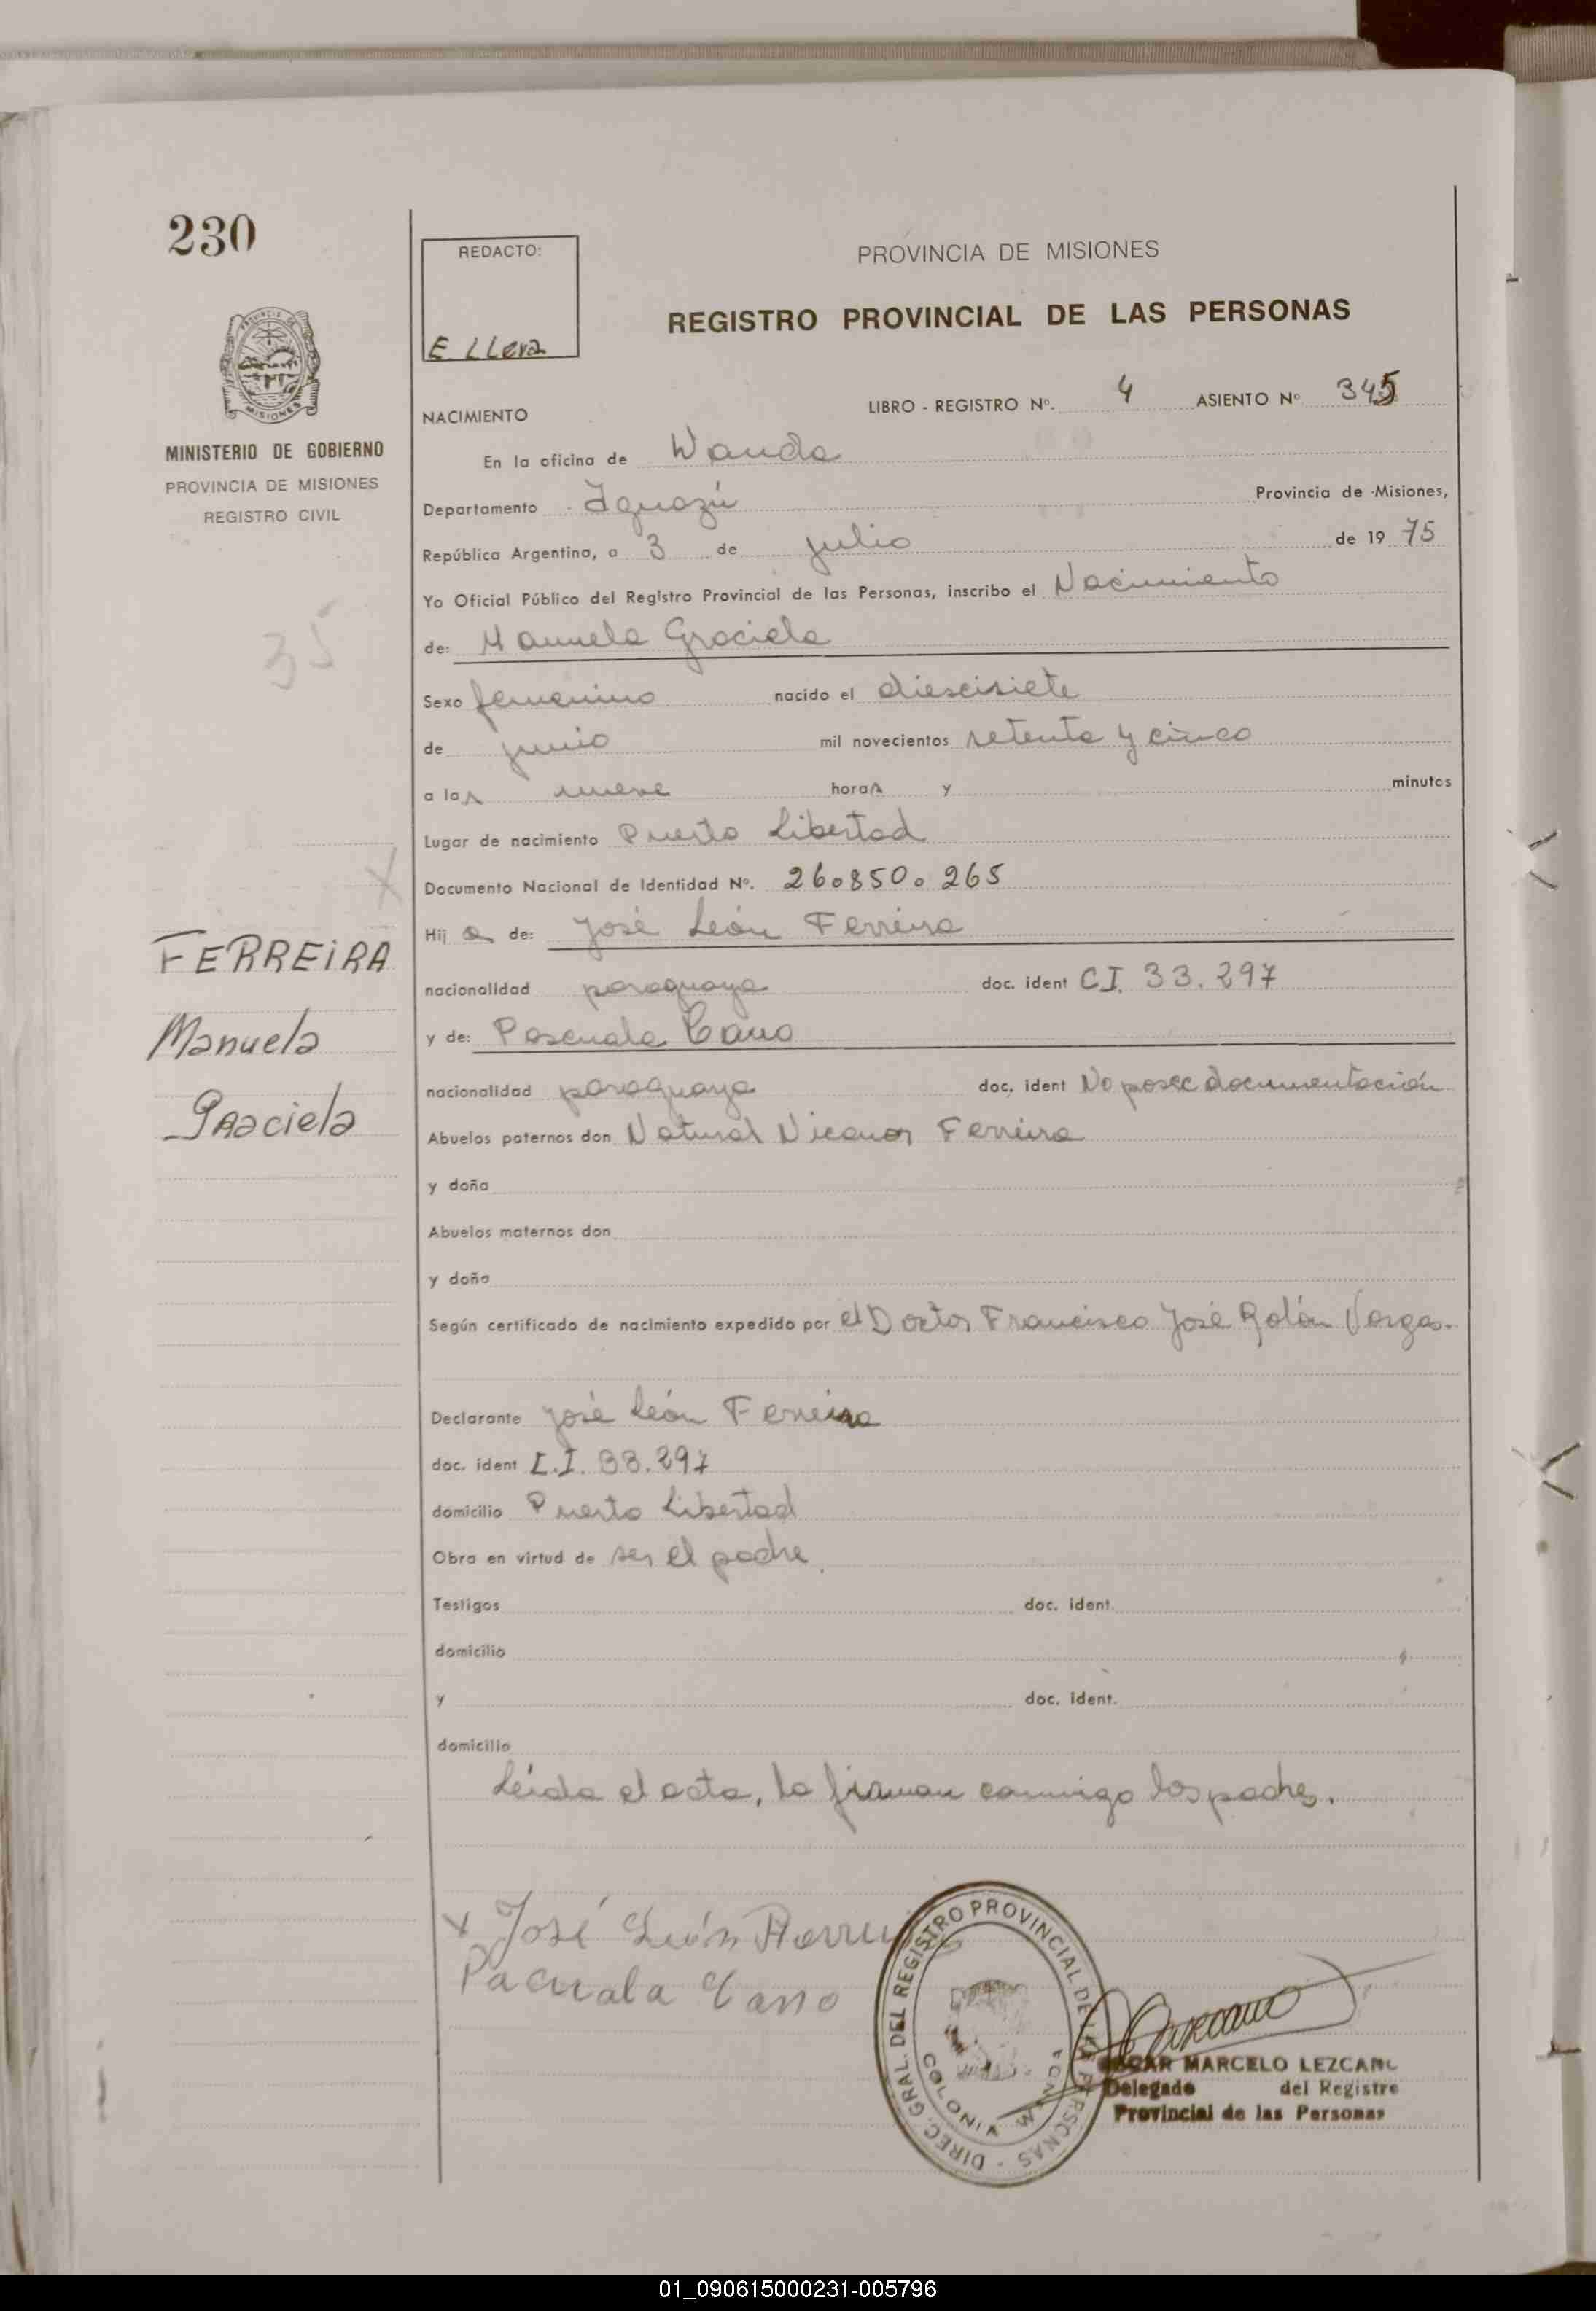 230
REDACTO:
E LLera
PROVINCIA DE MISIONES
REGISTRO PROVINCIAL DE LAS PERSONAS
PROVINCIA DE
MISIONES
MINISTERIO DE GOBIERNO
PROVINCIA DE MISIONES
REGISTRO CIVIL
35
NACIMIENTO
LIBRO - REGISTRO Nº. 4 ASIENTO Nº 345
En la oficina de Wanda
Departamento Iguazú Provincia de Misiones,
República Argentina, a 3 de julio de 19 75
Yo Oficial Público del Registro Provincial de las Personas, inscribo el Nacimiento
de: Manuela Graciela
Sexo femenino nacido el diescisiete
de junio mil novecientos setenta y cinco
a las nueve horas y minutos
Lugar de nacimiento Puerto Libertad
Documento Nacional de Identidad Nº. 26.850.265
Hij a de: José León Ferreira
nacionalidad paraguaya doc. ident C.I. 33.297
y de: Pascuala Cano
nacionalidad paraguaya doc. ident No posee documentación
Abuelos paternos don Natural Nicanor Ferreira
y doña
Abuelos maternos don
y doña
Según certificado de nacimiento expedido por el Doctor Francisco José Rolón Vargas.
Declarante José León Ferreira
doc. ident C.I. 33.297
domicilio Puerto Libertad
Obra en virtud de ser el padre.
Testigos doc. ident.
domicilio
y doc. ident.
domicilio
Leída el acta, la firman conmigo los padres.
FERREIRA
Manuela
Graciela
x José León
Pacuala Cano
DIREC. GRAL. DEL REGISTRO PROVINCIAL DE LAS PERSONAS
COLONIA WANDA
OSCAR MARCELO LEZCANO
Delegado del Registro
Provincial de las Personas
01_090615000231-005796